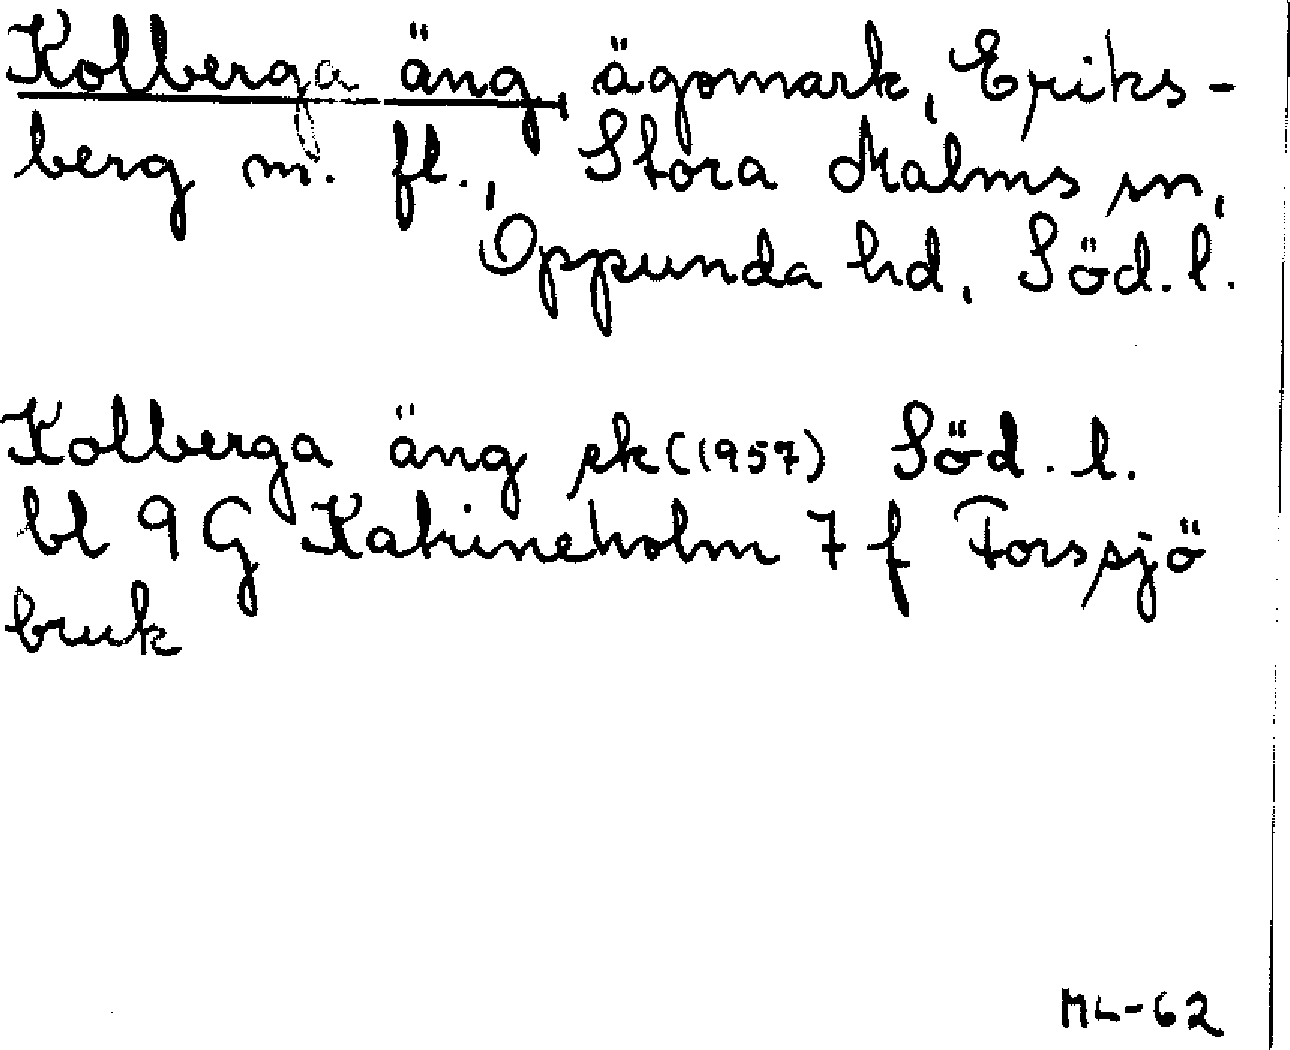 Kolberga äng, ägomark, Eriks-
berg m. fl., Stora Malms sn,
Oppunda hd, Söd. l.
Kolberga äng ek (1957) Söd. l.
bl 9 G Katrineholm 7 f Forssjö
bruk
ML-62